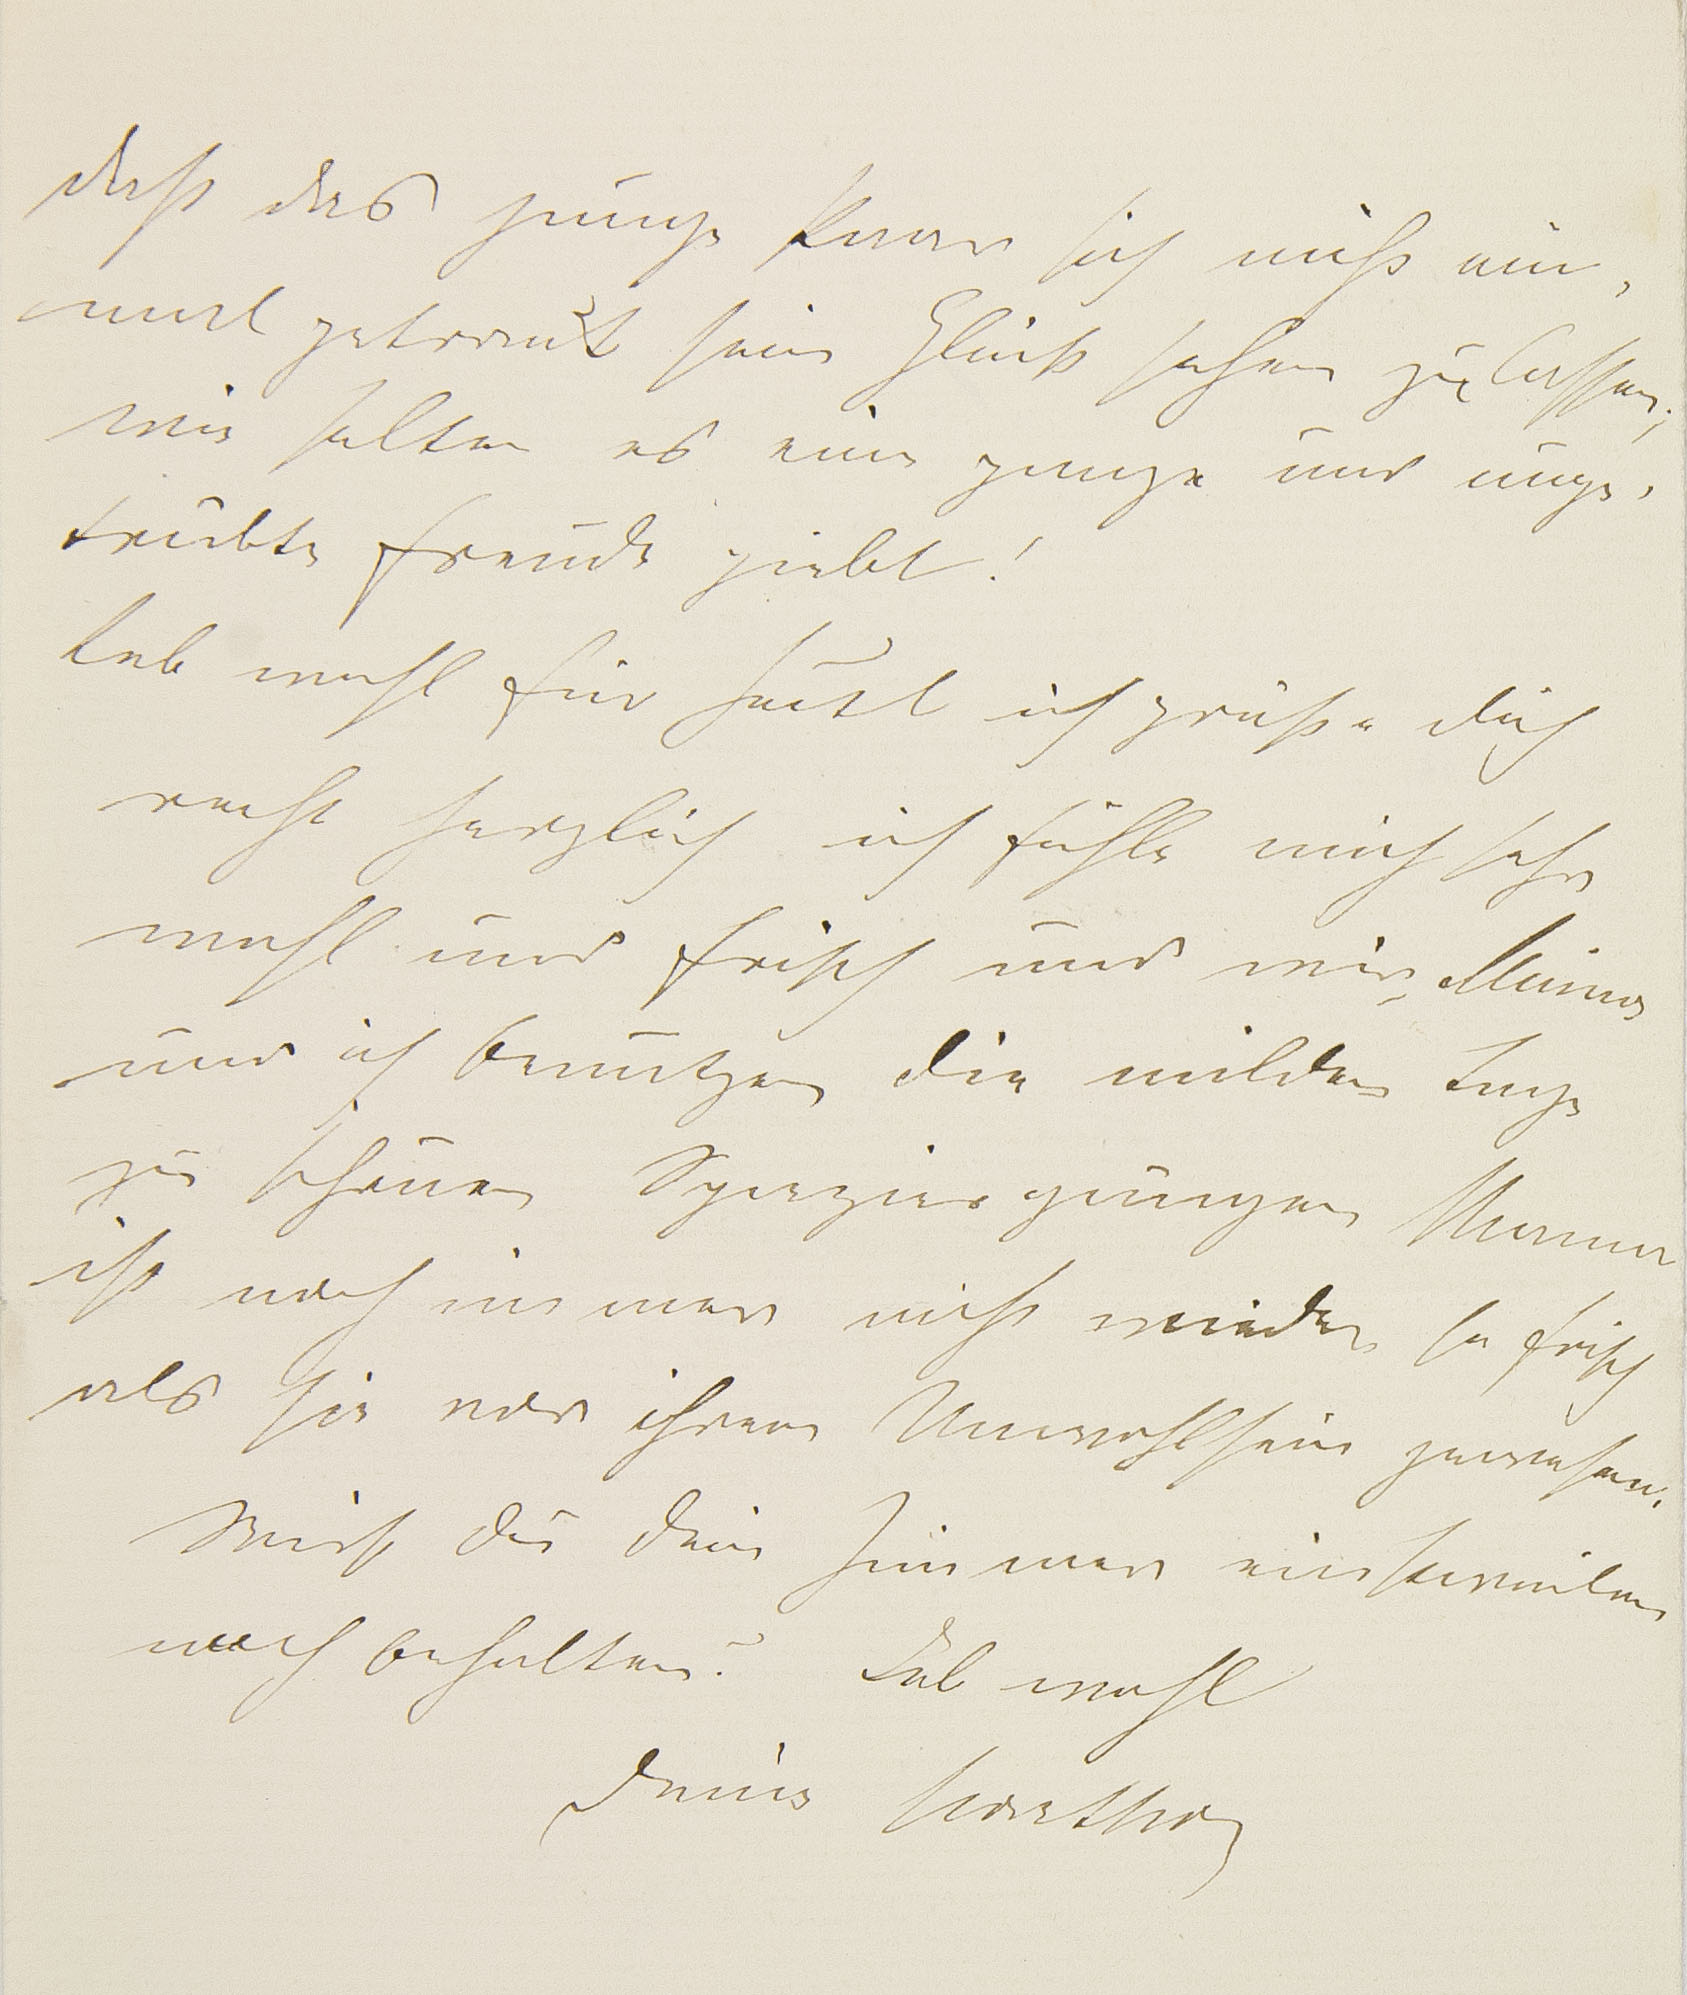 daß das junge Paar sich nicht ein-
mal getraut sein Glück sehen zu lassen;
wie selten es eine ganze und unge-
trübte Freude giebt!
Leb wohl für heut ich grüße dich
recht herzlich ich fühle mich sehr
wohl und frisch und wir,
und ich benutzen die milden Tage
zu schönen Spaziergängen Mama
ist noch immer nicht wieder so frisch
als sie vor ihrem Unwohlsein gewesen.
Wirst du dein Zimmer einstweilen
noch behalten? Leb wohl
deine